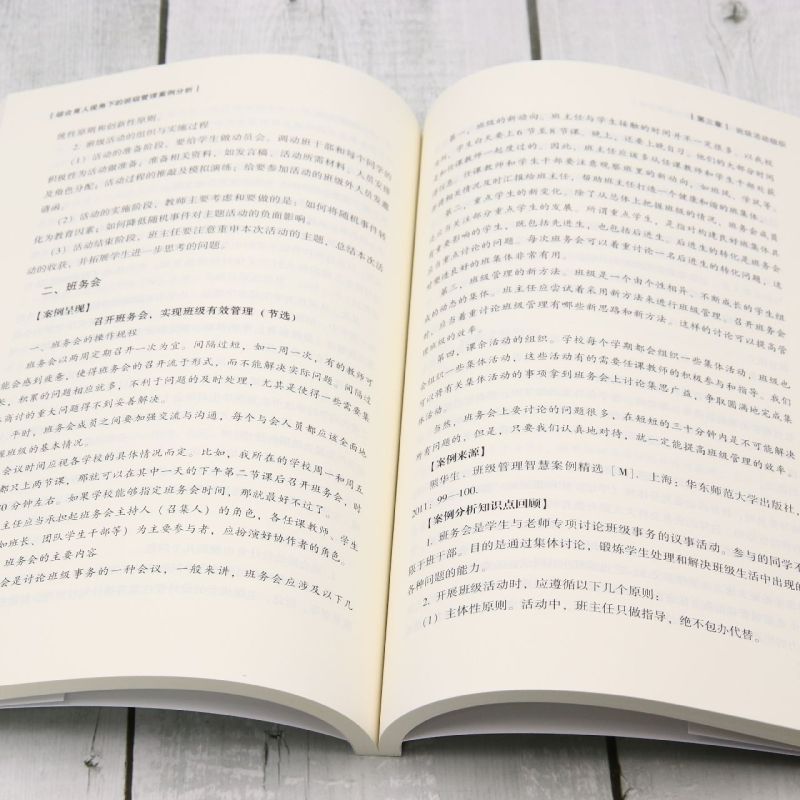 ［综合育人视角下的班级管理案例分析］
性原则和创新性原则。
2. 班级活动的组织与实施过程
（1）活动的准备阶段，要给学生做动员会，调动班干部和每个同学的
积极性为活动做准备，准备相关资料，如发言稿、活动所需材料、人员安排
及角色分配；活动过程的推敲及模拟演练；给要参加活动的班级外人员发邀
请函。
（2）活动的实施阶段，教师主要考虑和要做的是：如何将随机事件转
化为教育因素；如何降低随机事件对主题活动的负面影响。
（3）活动结束阶段，班主任要注意重申本次活动的主题，总结本次活
动的收获，并拓展学生进一步思考的问题。
二、班务会
【案例呈现】
召开班务会，实现班级有效管理（节选）
一、班务会的操作规程
班务会以两周定期召开一次为宜。间隔过短，如一周一次，有的教师可
能会感到疲惫，使得班务会的召开流于形式，而不能解决实际问题。间隔过
长，积累的问题相应就多，不利于问题的及时处理，尤其是使得一些需要集
体商讨的重大问题得不到妥善解决。
平时，班务会成员之间要加强交流与沟通，每个与会人员都应该全面地
握班级的基本情况。
会议时间应视各学校的具体情况而定。比如，我所在的学校周一和周五
都只上两节课，那就可以在其中一天的下午第二节课后召开班务会，时
0分钟左右。如果学校能够指定班务会时间，那就最好不过了。
主任应当承担起班务会主持人（召集人）的角色，各任课教师、学生
如班长、团队学生干部等）为主要参与者，应扮演好协作者的角色。
班务会的主要内容
会是讨论班级事务的一种会议，一般来讲，班务会应涉及以下几
［第三章］ 班级活动组织
第一，班级的新动向。班主任与学生接触的时间并不一定很多。以高校
学生白天要上6节至8节课，晚上，还要上晚自习。他们的大部分时间
任课教师一起度过的。因此，班主任应该多从任课教师和学生干部处获
信息。任课教师和学生干部要注意观察班里的新动向，如班风、学风等，
将相关情况及时汇报给班主任，帮助班主任打造一个健康和谐的班集体。
第二，重点学生的新变化。除了从总体上把握班级的情况，班务会成员
应关注部分重点学生的发展。所谓重点学生，是指对构建良好班集体具
有重要影响的学生，既包括先进生，也包括后进生。后进生的转化是班务会
应当重点讨论的问题。每次班务会可以着重讨论一名后进生的转化问题，这
对塑造良好的班集体非常有用。
第三，班级管理的新方法。班级是一个由个性相异、不断成长的学生组
成的动态的集体。班主任应尝试着采用新方法来进行班级管理。召开班务会
时，应当着重讨论班级管理有哪些新思路和新方法。这样的讨论可以提高管
理班级的效率。
第四，课余活动的组织。学校每个学期都会组织一些集体活动，班级也
会组织一些集体活动，这些活动有的需要任课教师的积极参与和指导。我们
可以将有关集体活动的事项拿到班务会上讨论集思广益，争取圆满地完成集
体活动。
当然，班务会上要讨论的问题很多，在短短的三十分钟内是不可能解决
所有问题的，但是，只要我们认真地对待，就一定能提高班级管理的效率。
【案例来源】
熊华生．班级管理智慧案例精选［M］．上海：华东师范大学出版社，
2011：99—100.
【案例分析知识点回顾】
1. 班务会是学生与老师专项讨论班级事务的议事活动。参与的同学不
限于班干部。目的是通过集体讨论，锻炼学生处理和解决班级生活中出现的
各种问题的能力。
2. 开展班级活动时，应遵循以下几个原则：
（1）主体性原则。活动中，班主任只做指导，绝不包办代替。